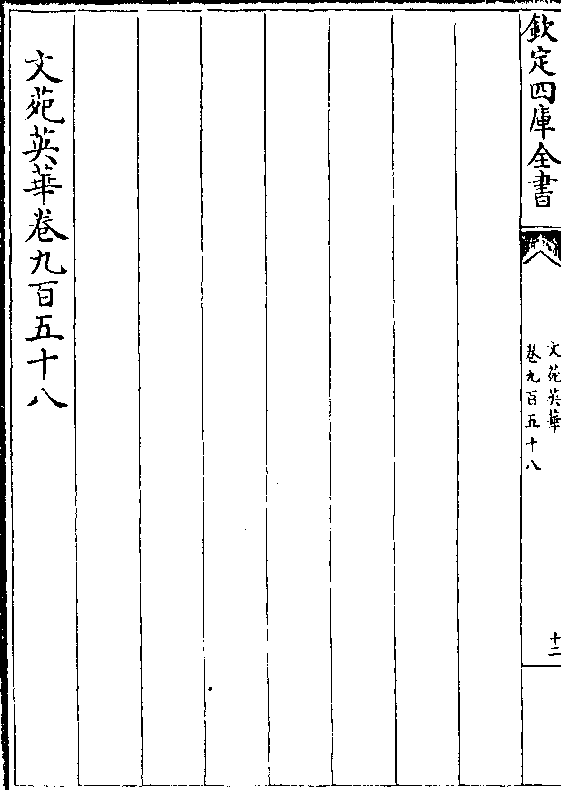 欽定四庫全書
文苑英華
卷九百五十八
十二
文苑英華卷九百五十八